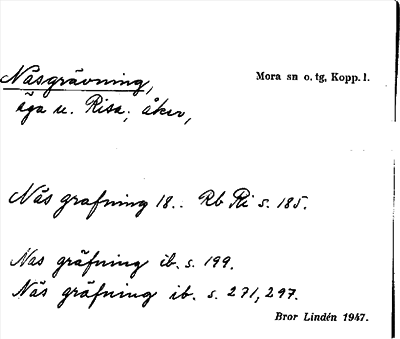 Näsgrävning, Mora sn o. tg, Kopp. l.
äga u. Risa; åker,
Näs grafning 18.. Rb Ri s. 185.
Nas gräfning ib. s. 199.
Näs gräfning ib. s. 271, 297.
Bror Lindén 1947.